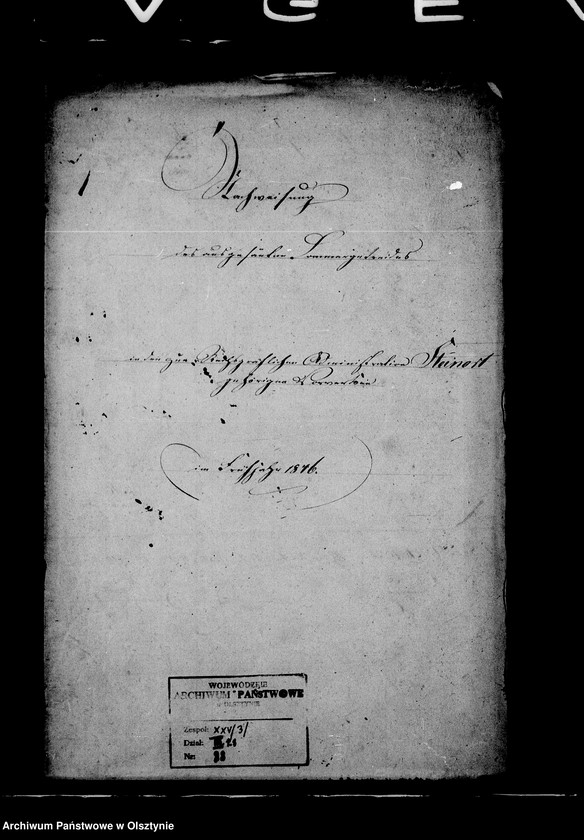 V G E
Nachweisung
des ausgesäeten Sommergetreides
in den zur Reichsgräflichen Administration Steinort
gehörigen Vorwerken
im Frühjahr 1846.
WOJEWÓDZKIE
ARCHIWUM PAŃSTWOWE
w OLSZTYNIE
Zespół: XXV/3/
Dział:
Nr: 33
Archiwum Państwowe w Olsztynie